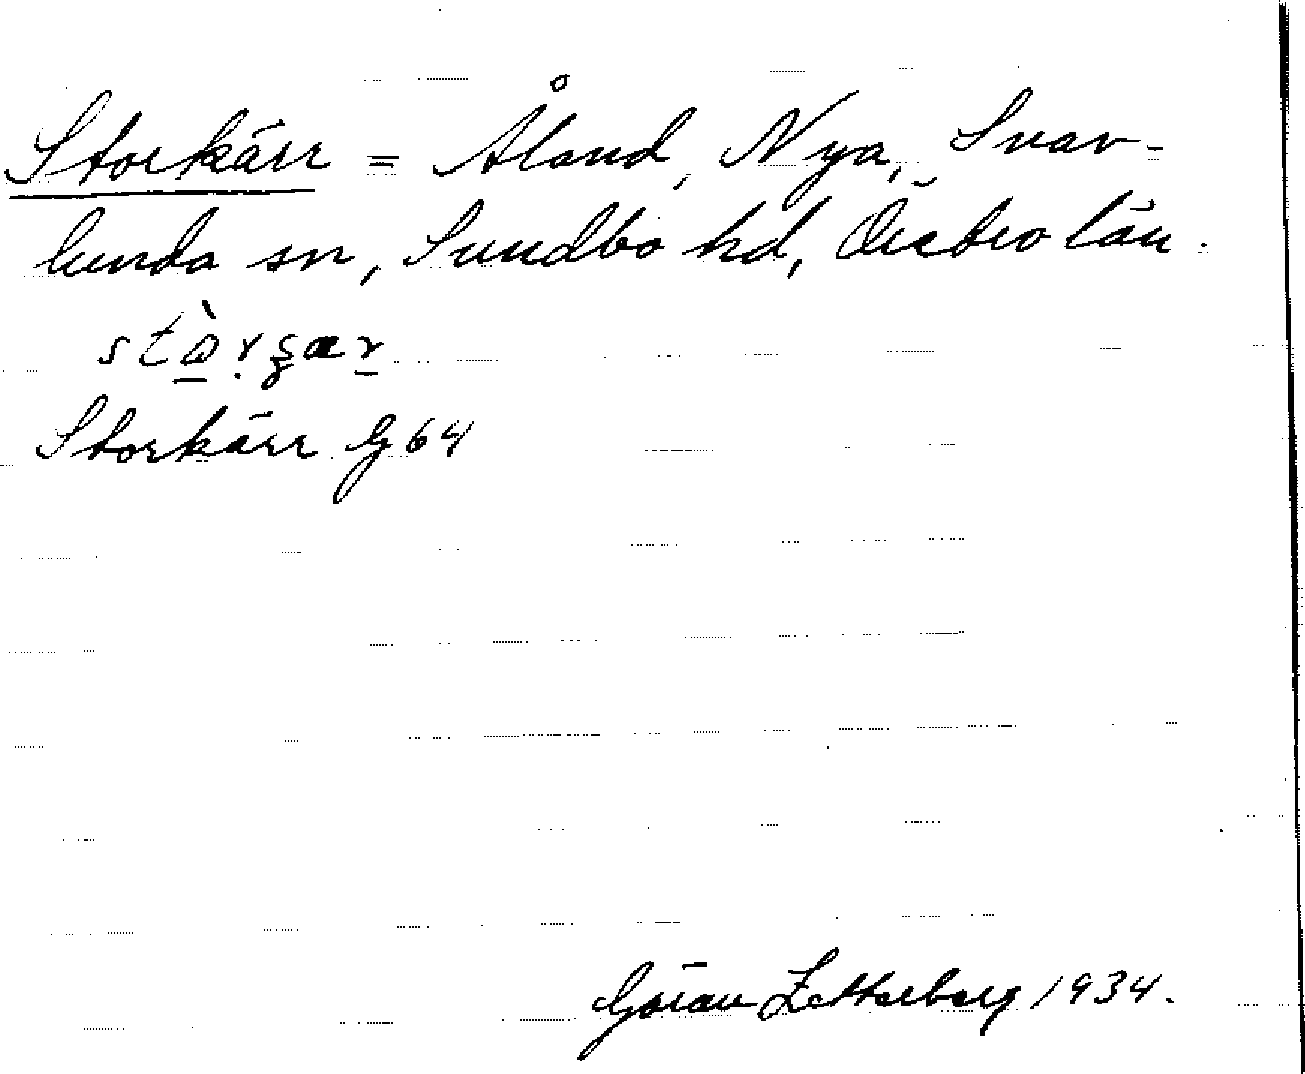 Storkärr = Åland, Nya, Svav-
lunda sn, Sundbo hd, Örebro län.
Storkärr G 64
Göran Zetterberg 1934.